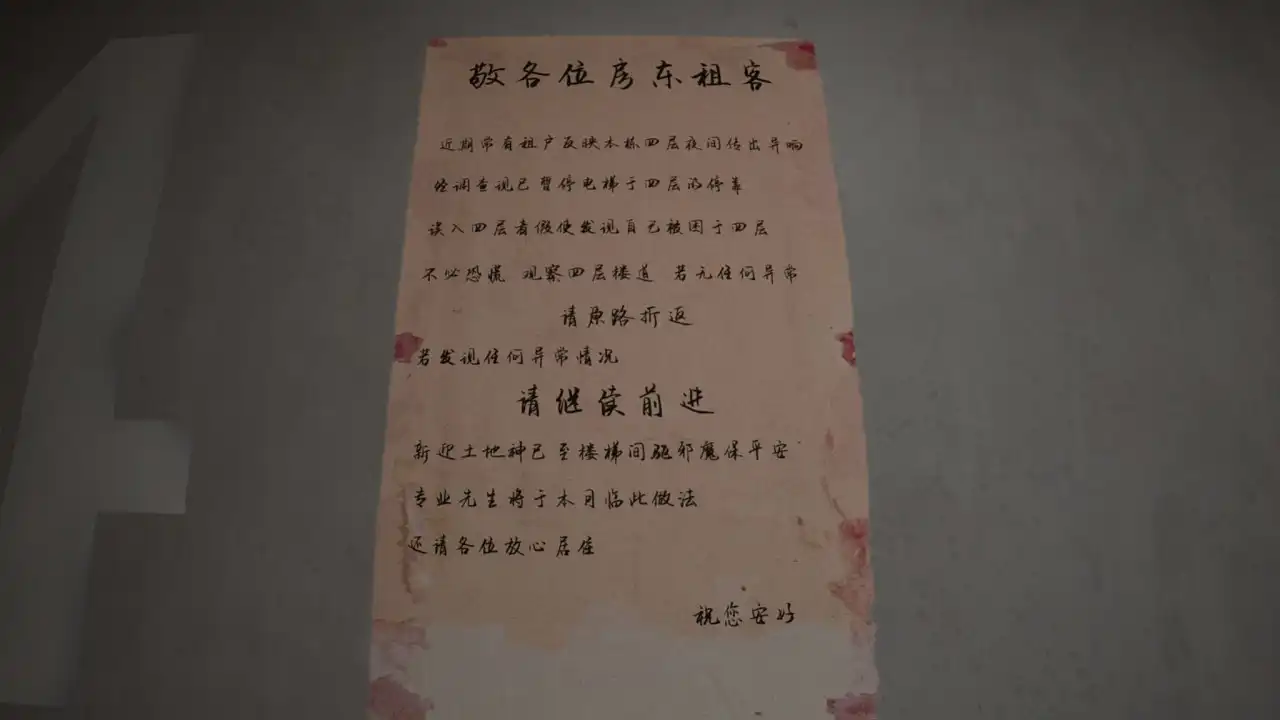 敬各位房东租客
近期常有租户反映本栋四层夜间传出异响
经调查现已暂停电梯于四层的停靠
误入四层者假使发现自己被困于四层
不必恐慌 观察四层楼道 若无任何异常
请原路折返
若发现任何异常情况
请继续前进
新迎土地神已至楼梯间驱邪魔保平安
专业先生将于本月临此做法
还请各位放心居住
祝您安好
4